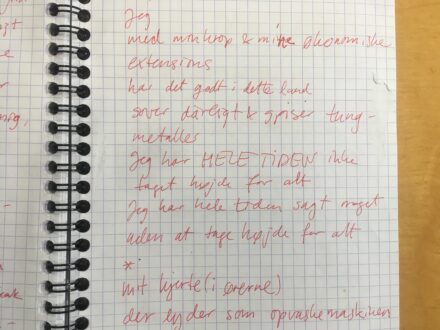 Jeg
med min krop & mine økonomiske
extensions
har det godt i dette land
sover dårligt & spiser tung-
metaller
Jeg har HELE TIDEN ikke
taget højde for alt
Jeg har hele tiden sagt noget
uden at tage højde for alt
*
mit hjerte (i ørerne)
der lyder som opvaskemaskinen